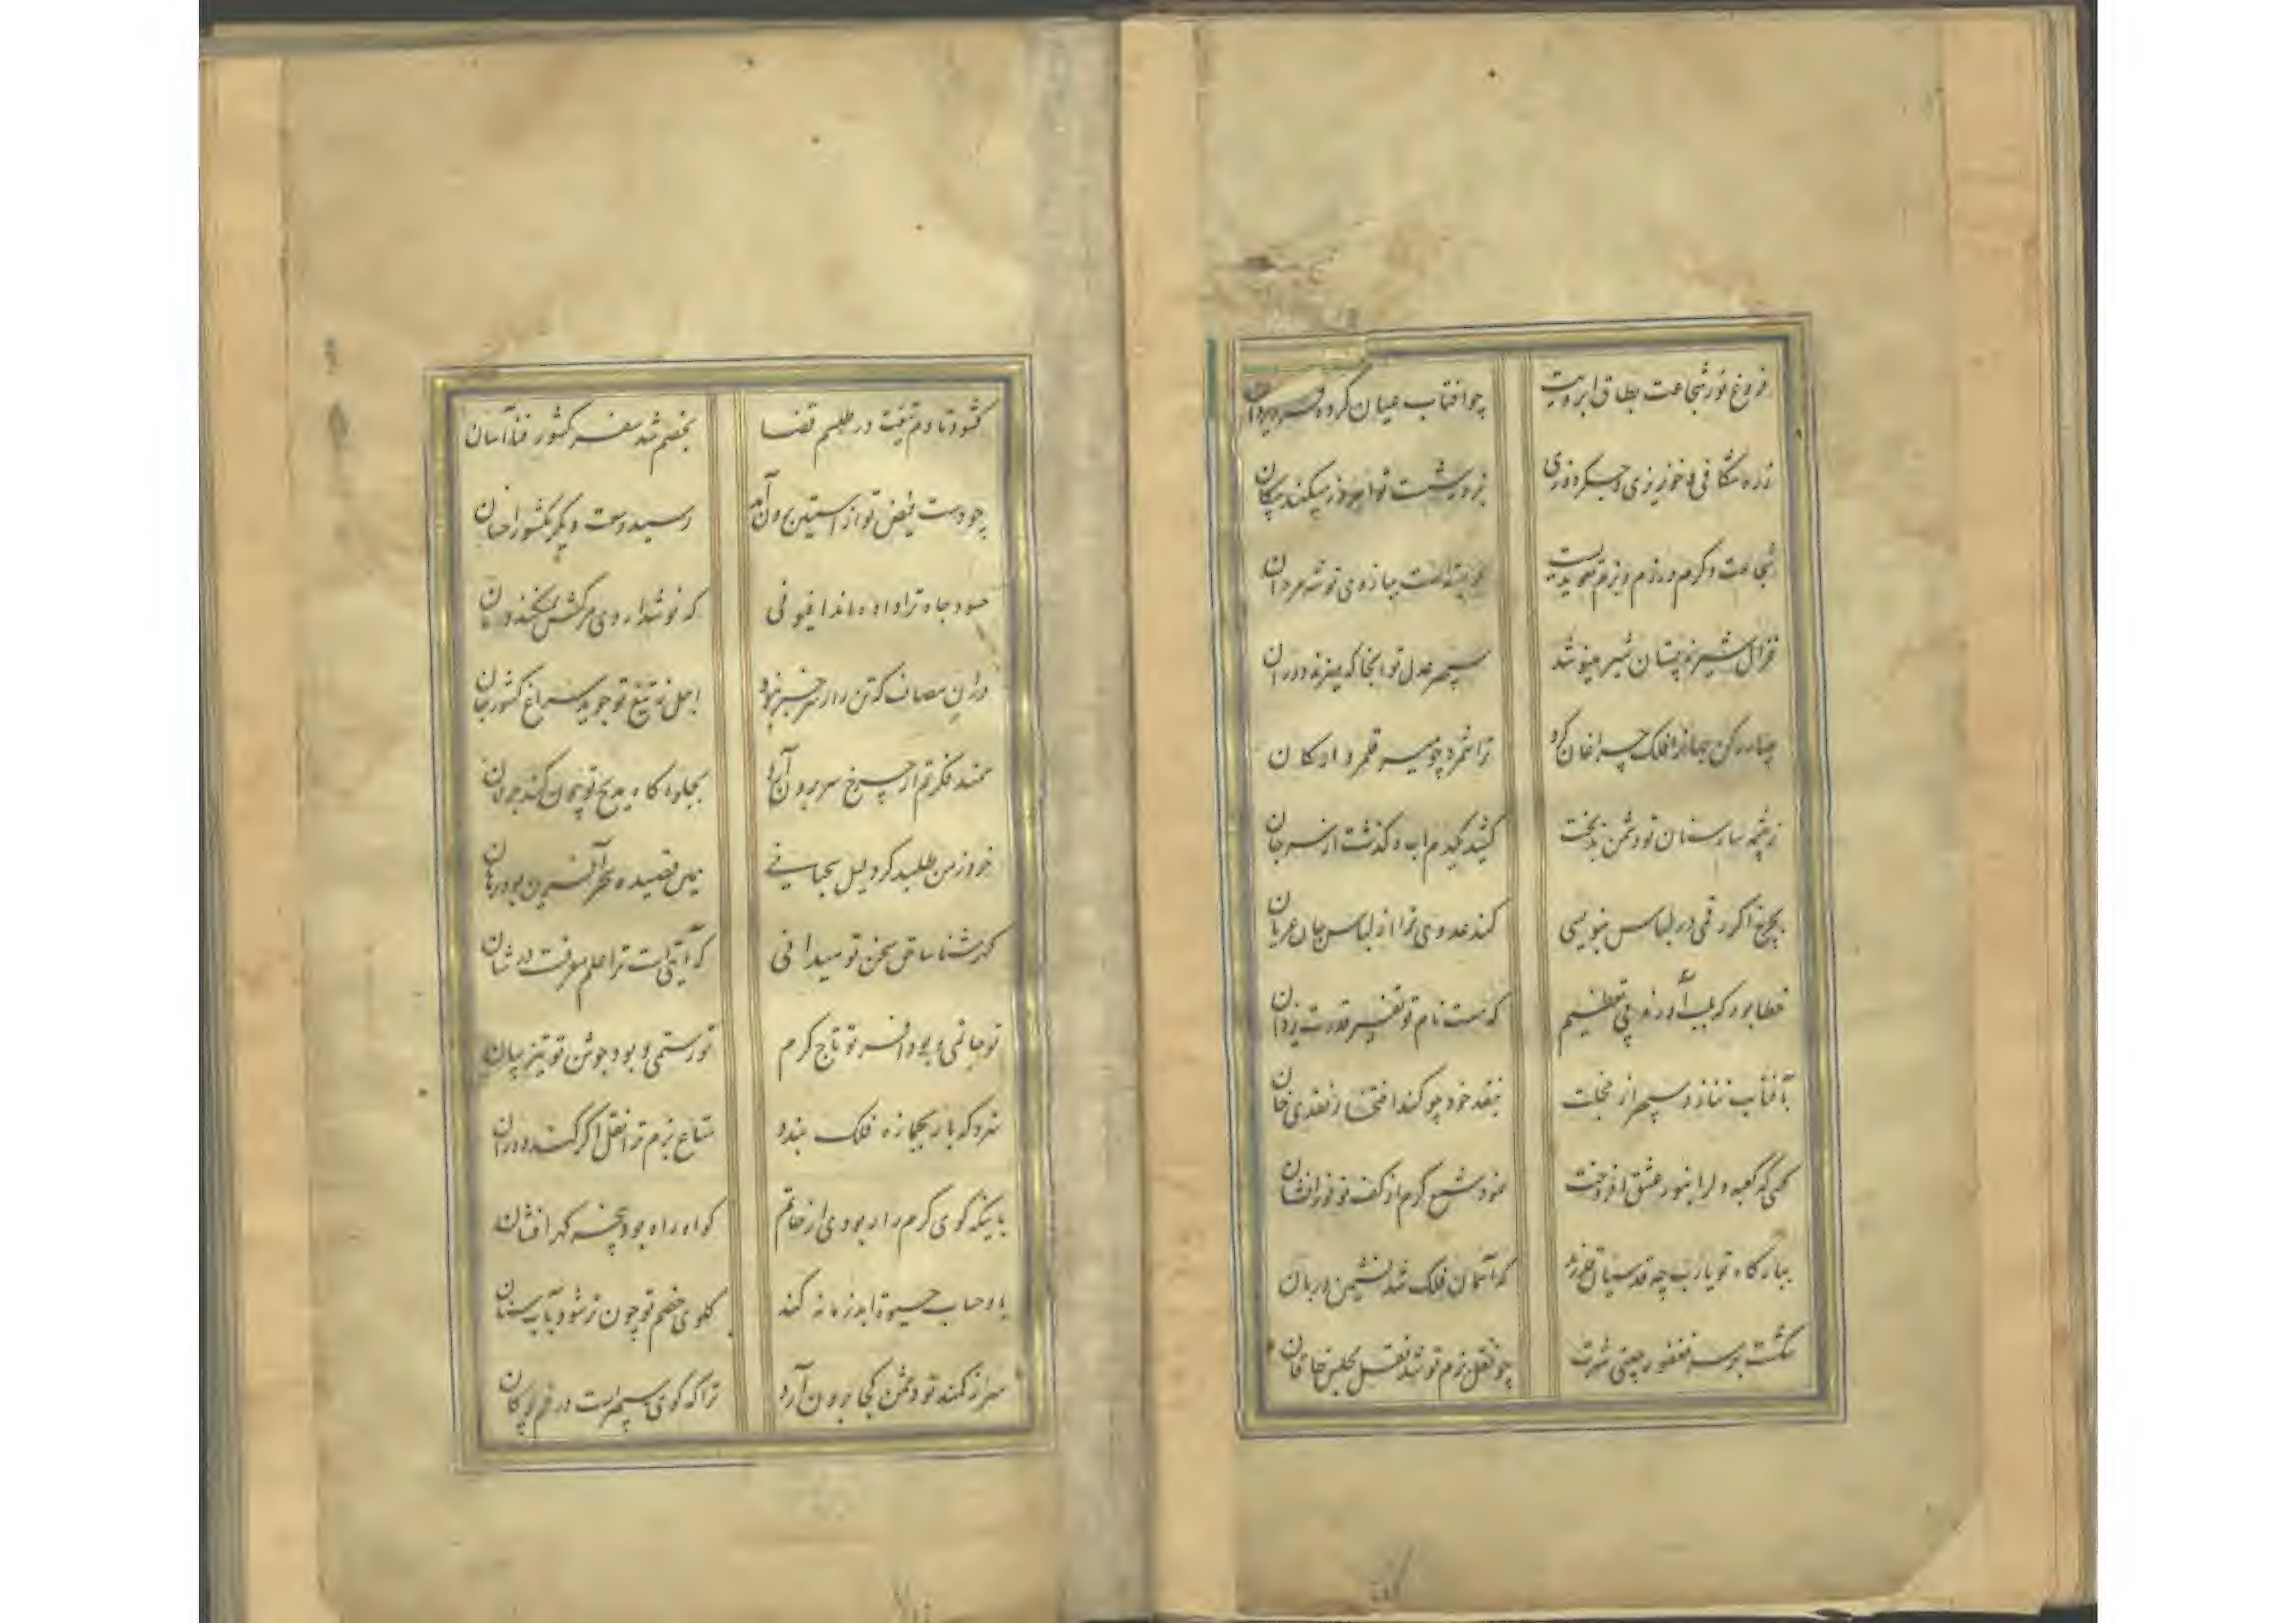 فروغ نور شجاعت بطاق ابرویت چو آفتاب عیان کرده
زره شکافی و خونریزی و جگر دوزی بزور شست تو آموزد میکند پیکان
شجاعت و کرم و رزم و بزم بازوی تو شه مردان
غزال شیر نر پستان شیر مینوشد سپهر عدل تو آنجا که دوران
چهار رکن جهانرا فلک چراغان کرد ترا شمرد چو میر قلمرو ارکان
ز چشمه سار سنان تو دشمن بدبخت کشید یکدم آب و گذشت از سر جان
بچرخ اگر رقمی در لباس بنویسی کند عدوی ترا از لباس جان عریان
خطا بود که بلب آورند بی تعظیم که هست نام تو تفسیر قدرت یزدان
بآفتاب ننازد سپهر از خجلت بنقد خود چو کند افتخار نقدی خان
کسی که کعبه دلرا بنور عشق افروخت نمود شمع کرم از کف تو نور افشان
ببارگاه تو یارب چه قدسیان که آسمان فلک شد نشیمن دربان
شکست بر سر فغفور چینی شهرت چو نقل بزم تو شد نقل مجلس خاقان
کشود تا دم تیغت در طلسم قضا بخصم شد سفر کشور فنا آسان
چو دست فیض تو از آستین برون آمد رسید دست دیگر بکشور احسان
حسود جاه ترا داده‌اند افیونی که نوشداروی مرگش نمیکند درمان
در آن مصاف که تن را ز سر خبر نبود اجل ز تیغ تو جوید سراغ کشور جان
سمند فکرتم از چرخ سر برون آرد بجلوه گاه مدیح تو چون کند جولان
خرد ز من طلبید گر دلیل سحبانی همین قصیده سحر آفرین بود برهان
گهرشناسا حق سخن تو میدانی که آیتی است ترا علم معرفت در شان
تو حاتمی و بود افسر تو تاج کرم تو رستمی و بود جوشن تو تیز بیان
سزد که بار بجمازه فلک بندد متاع بزم ترا نقل اگر کند دوران
باینکه گوی کرم را ربودی از حاتم گواه راه بود پنجه گهر افشان
یاد حساب حیوة ابد زمانه کند گلوی خصم تو چون تر شود بآب سنان
سر از کمند تو دشمن کجا برون آرد ترا که گوی سپهرست در خم چوگان